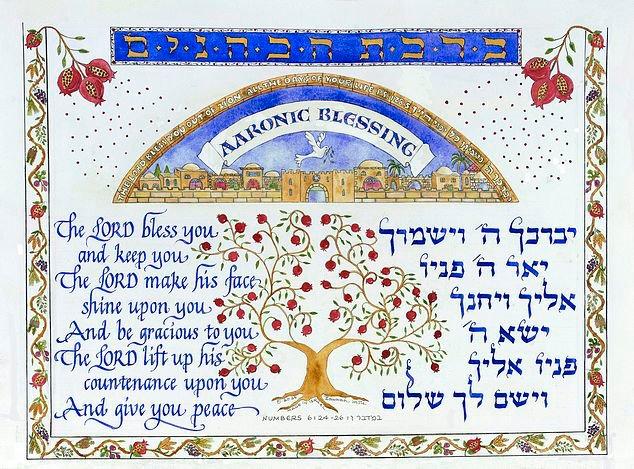 ברכת הכהנים
THE LORD BLESS YOU OUT OF ZION, ALL THE DAYS OF YOUR LIFE PS 128:5
AARONIC BLESSING
The LORD bless you
and keep you
The LORD make his face
shine upon you
And be gracious to you
The LORD lift up his
countenance upon you
And give you peace
יברכך ה׳ וישמרך
יאר ה׳ פניו
אליך ויחנך
ישא ה׳
פניו אליך
וישם לך שלום
NUMBERS 6:24-26 במדבר ו